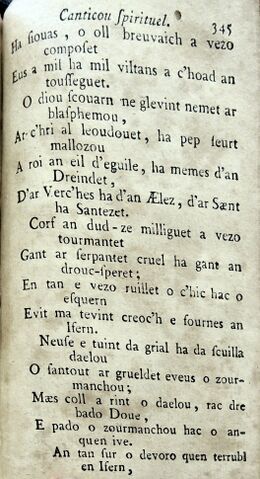 Canticou ſpirituel. 345
Ha ſiouas, o oll breuvaich a vezo
compoſet
Eus a mil ha mil viltans a c'hoad an
touſſeguet.
O diou ſcouarn ne glevint nemet ar
blaſphemou,
Ar c'hri al leoudouet, ha pep ſeurt
mallozou
A roi an eil d'eguile, ha memes d'an
Dreindet,
D'ar Verc'hes ha d'an Ælez, d'ar Sænt
ha Santezet.
Corf an dud-ze milliguet a vezo
tourmantet
Gant ar ſerpantet cruel ha gant an
drouc-ſperet;
En tan e vezo ruillet o c'hic hac o
eſquern
Evit ma tevint creoc'h e fournes an
Ifern.
Neuſe e tuint da grial ha da ſcuilla
daelou
O ſantout ar grueldet eveus o zour-
manchou;
Mæs coll a rint o daelou, rac dre
bado Doue,
E pado o zourmanchou hac o an-
quen ive.
An tan ſur o devoro quen terrubl
en Ifern,